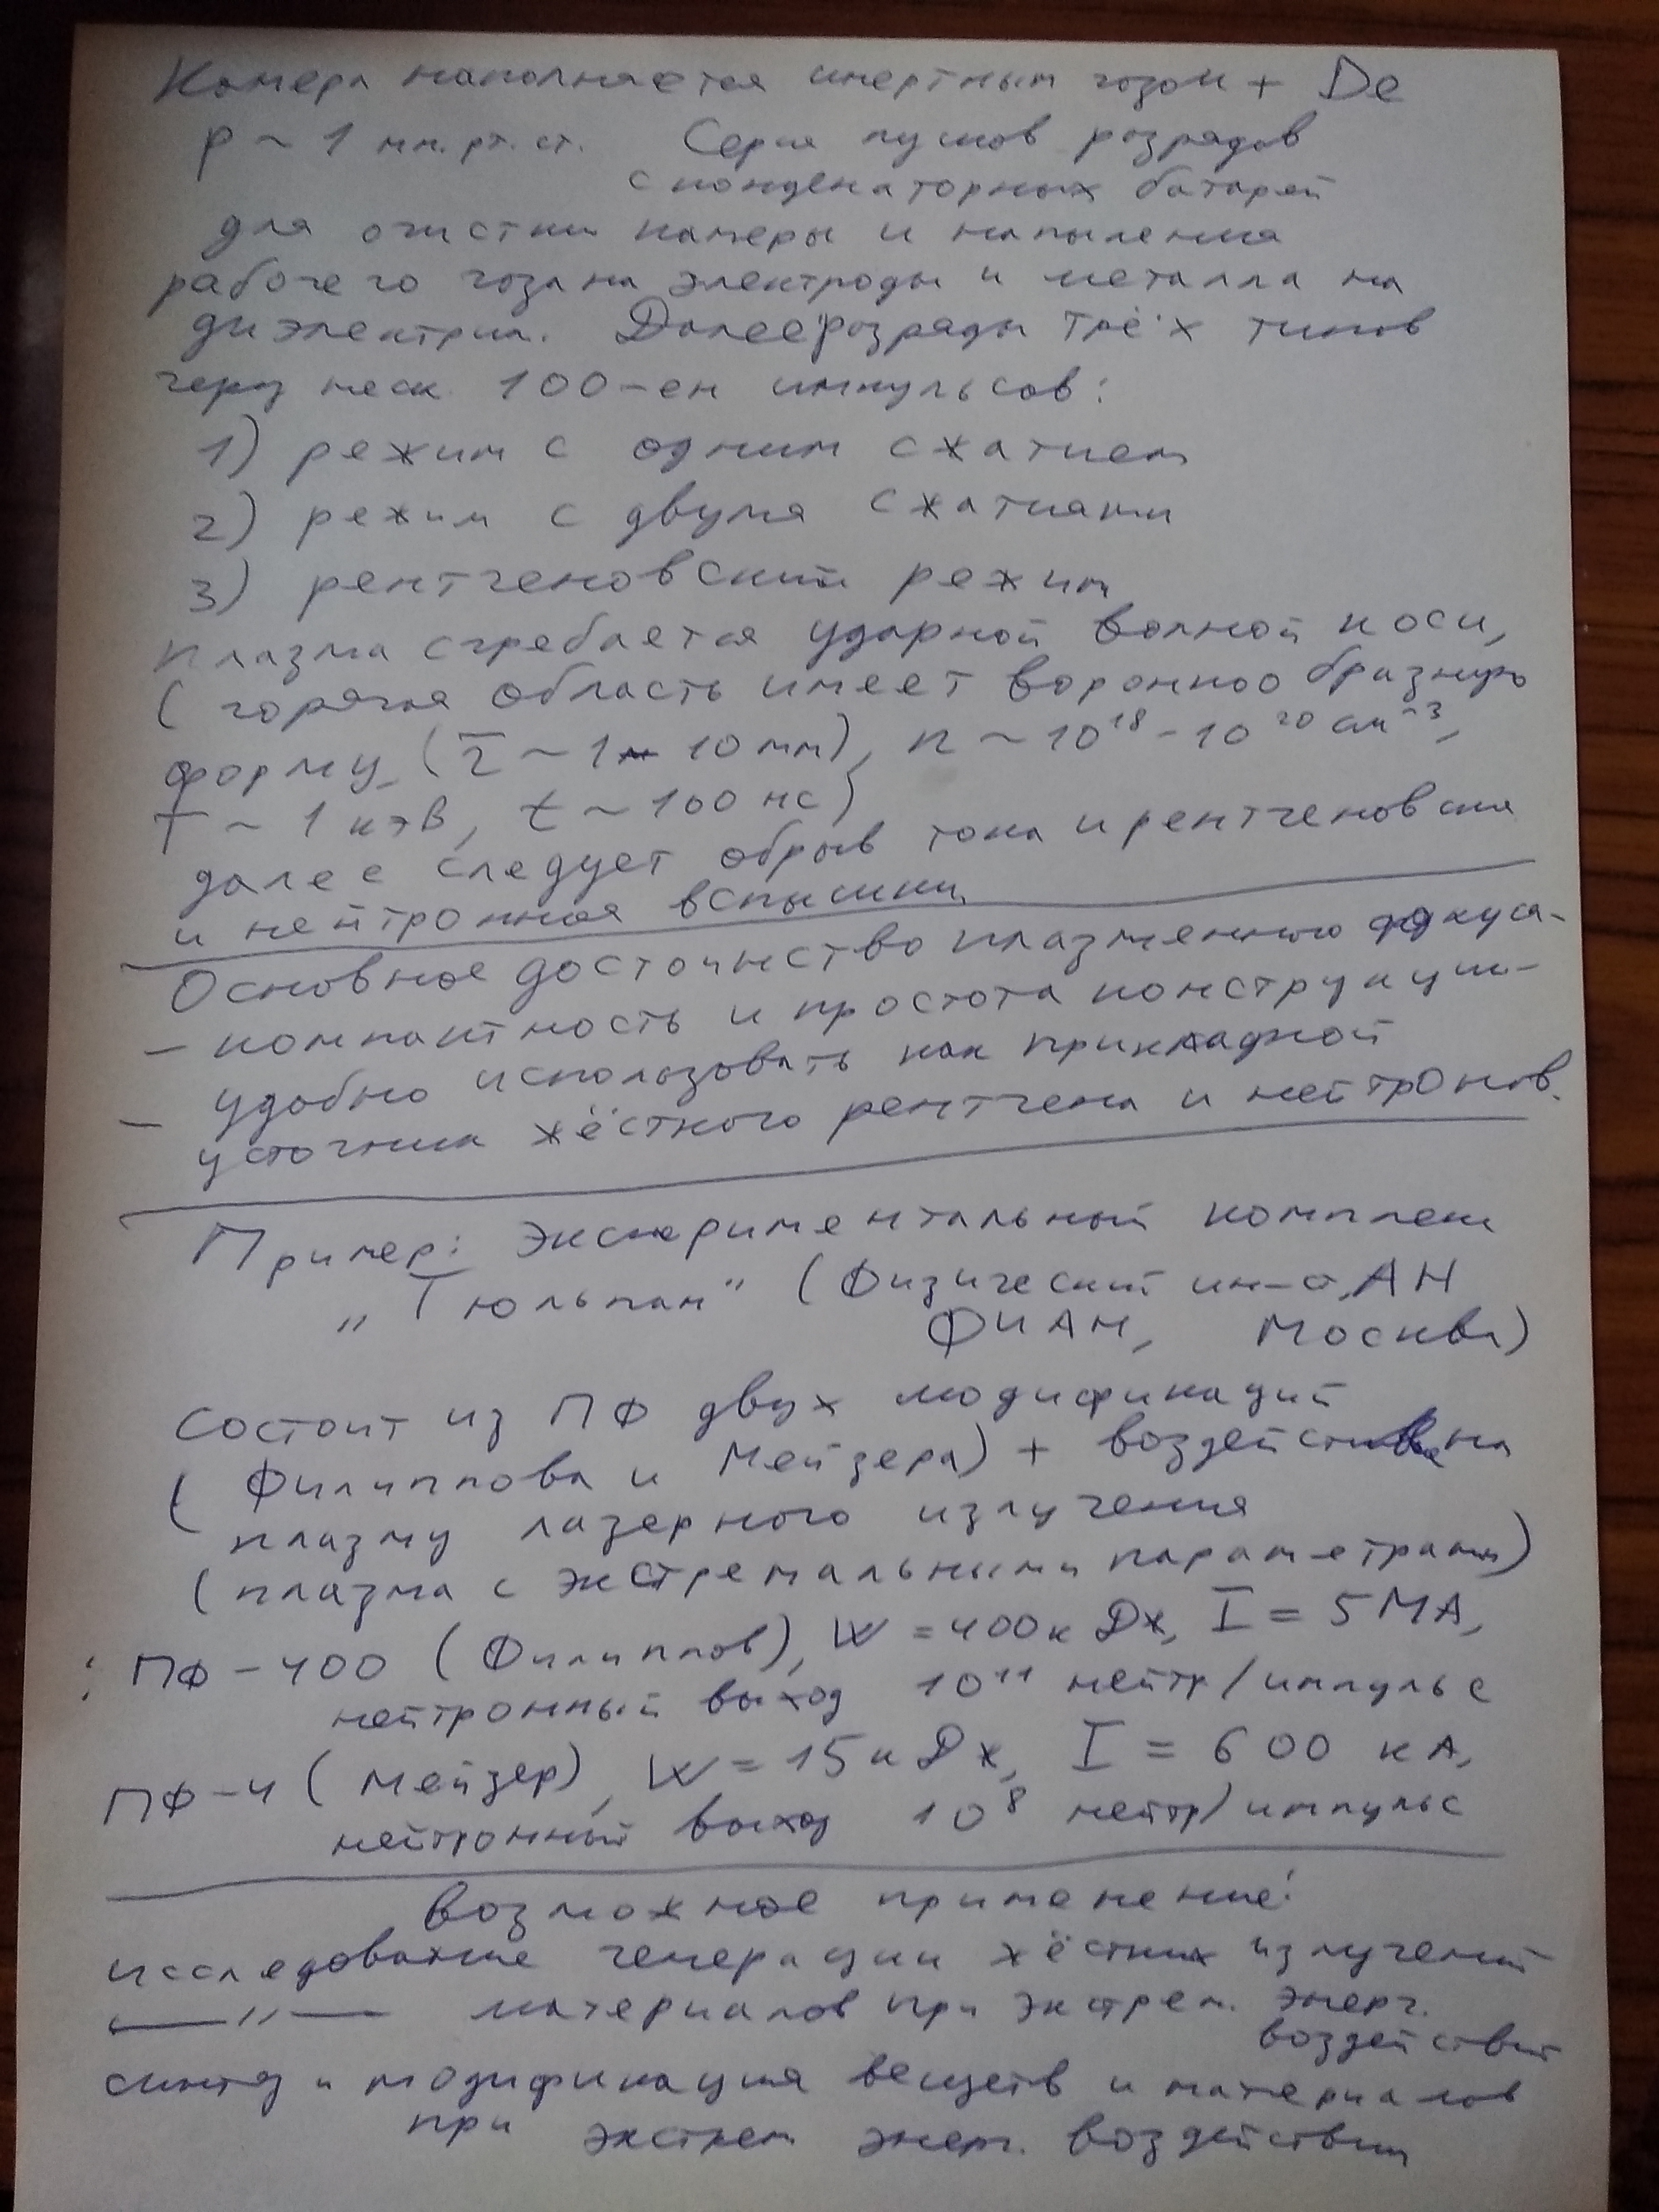 Камера наполняется инертным газом + De
p ~ 1 мм.рт.ст. Серия пусков разрядов
с конденсаторных батарей
для очистки камеры и напыления
рабочего газа на электроды и металла на
диэлектрик. Далее разряды трёх типов
через неск. 100-ен импульсов:
1) режим с одним сжатием
2) режим с двумя сжатиями
3) рентгеновский режим
Плазма сгребается ударной волной к оси,
( горячая область имеет воронкообразную
форму (r ~ 1 10 мм), n ~ 10¹⁸ - 10²⁰ см⁻³,
T ~ 1 кэВ, t ~ 100 нс)
далее следует обрыв тока и рентгеновская
и нейтронная вспышки
Основное достоинство плазменного фокуса -
- компактность и простота конструкции -
- удобно использовать как прикладной
источник жёсткого рентгена и нейтронов.
Пример: Экспериментальный комплекс
„Тюльпан" (Физический ин-т, АН
ФИАН, Москва)
Состоит из ПФ двух модификаций
( Филиппова и Мейзера) + воздействие на
плазму лазерного излучения
( плазма с экстремальными параметрами)
: ПФ-400 (Филиппов), W = 400 кДж, I = 5 МА,
нейтронный выход 10¹¹ нейтр/импульс
ПФ-4 (Мейзер), W = 15 кДж, I = 600 кА,
нейтронный выход 10⁸ нейтр/импульс
Возможное применение:
исследование генерации жёстких излучений
—"— материалов при экстрем. энерг.
воздействии
синтез и модификация веществ и материалов
при экстрем. энерг. воздействии